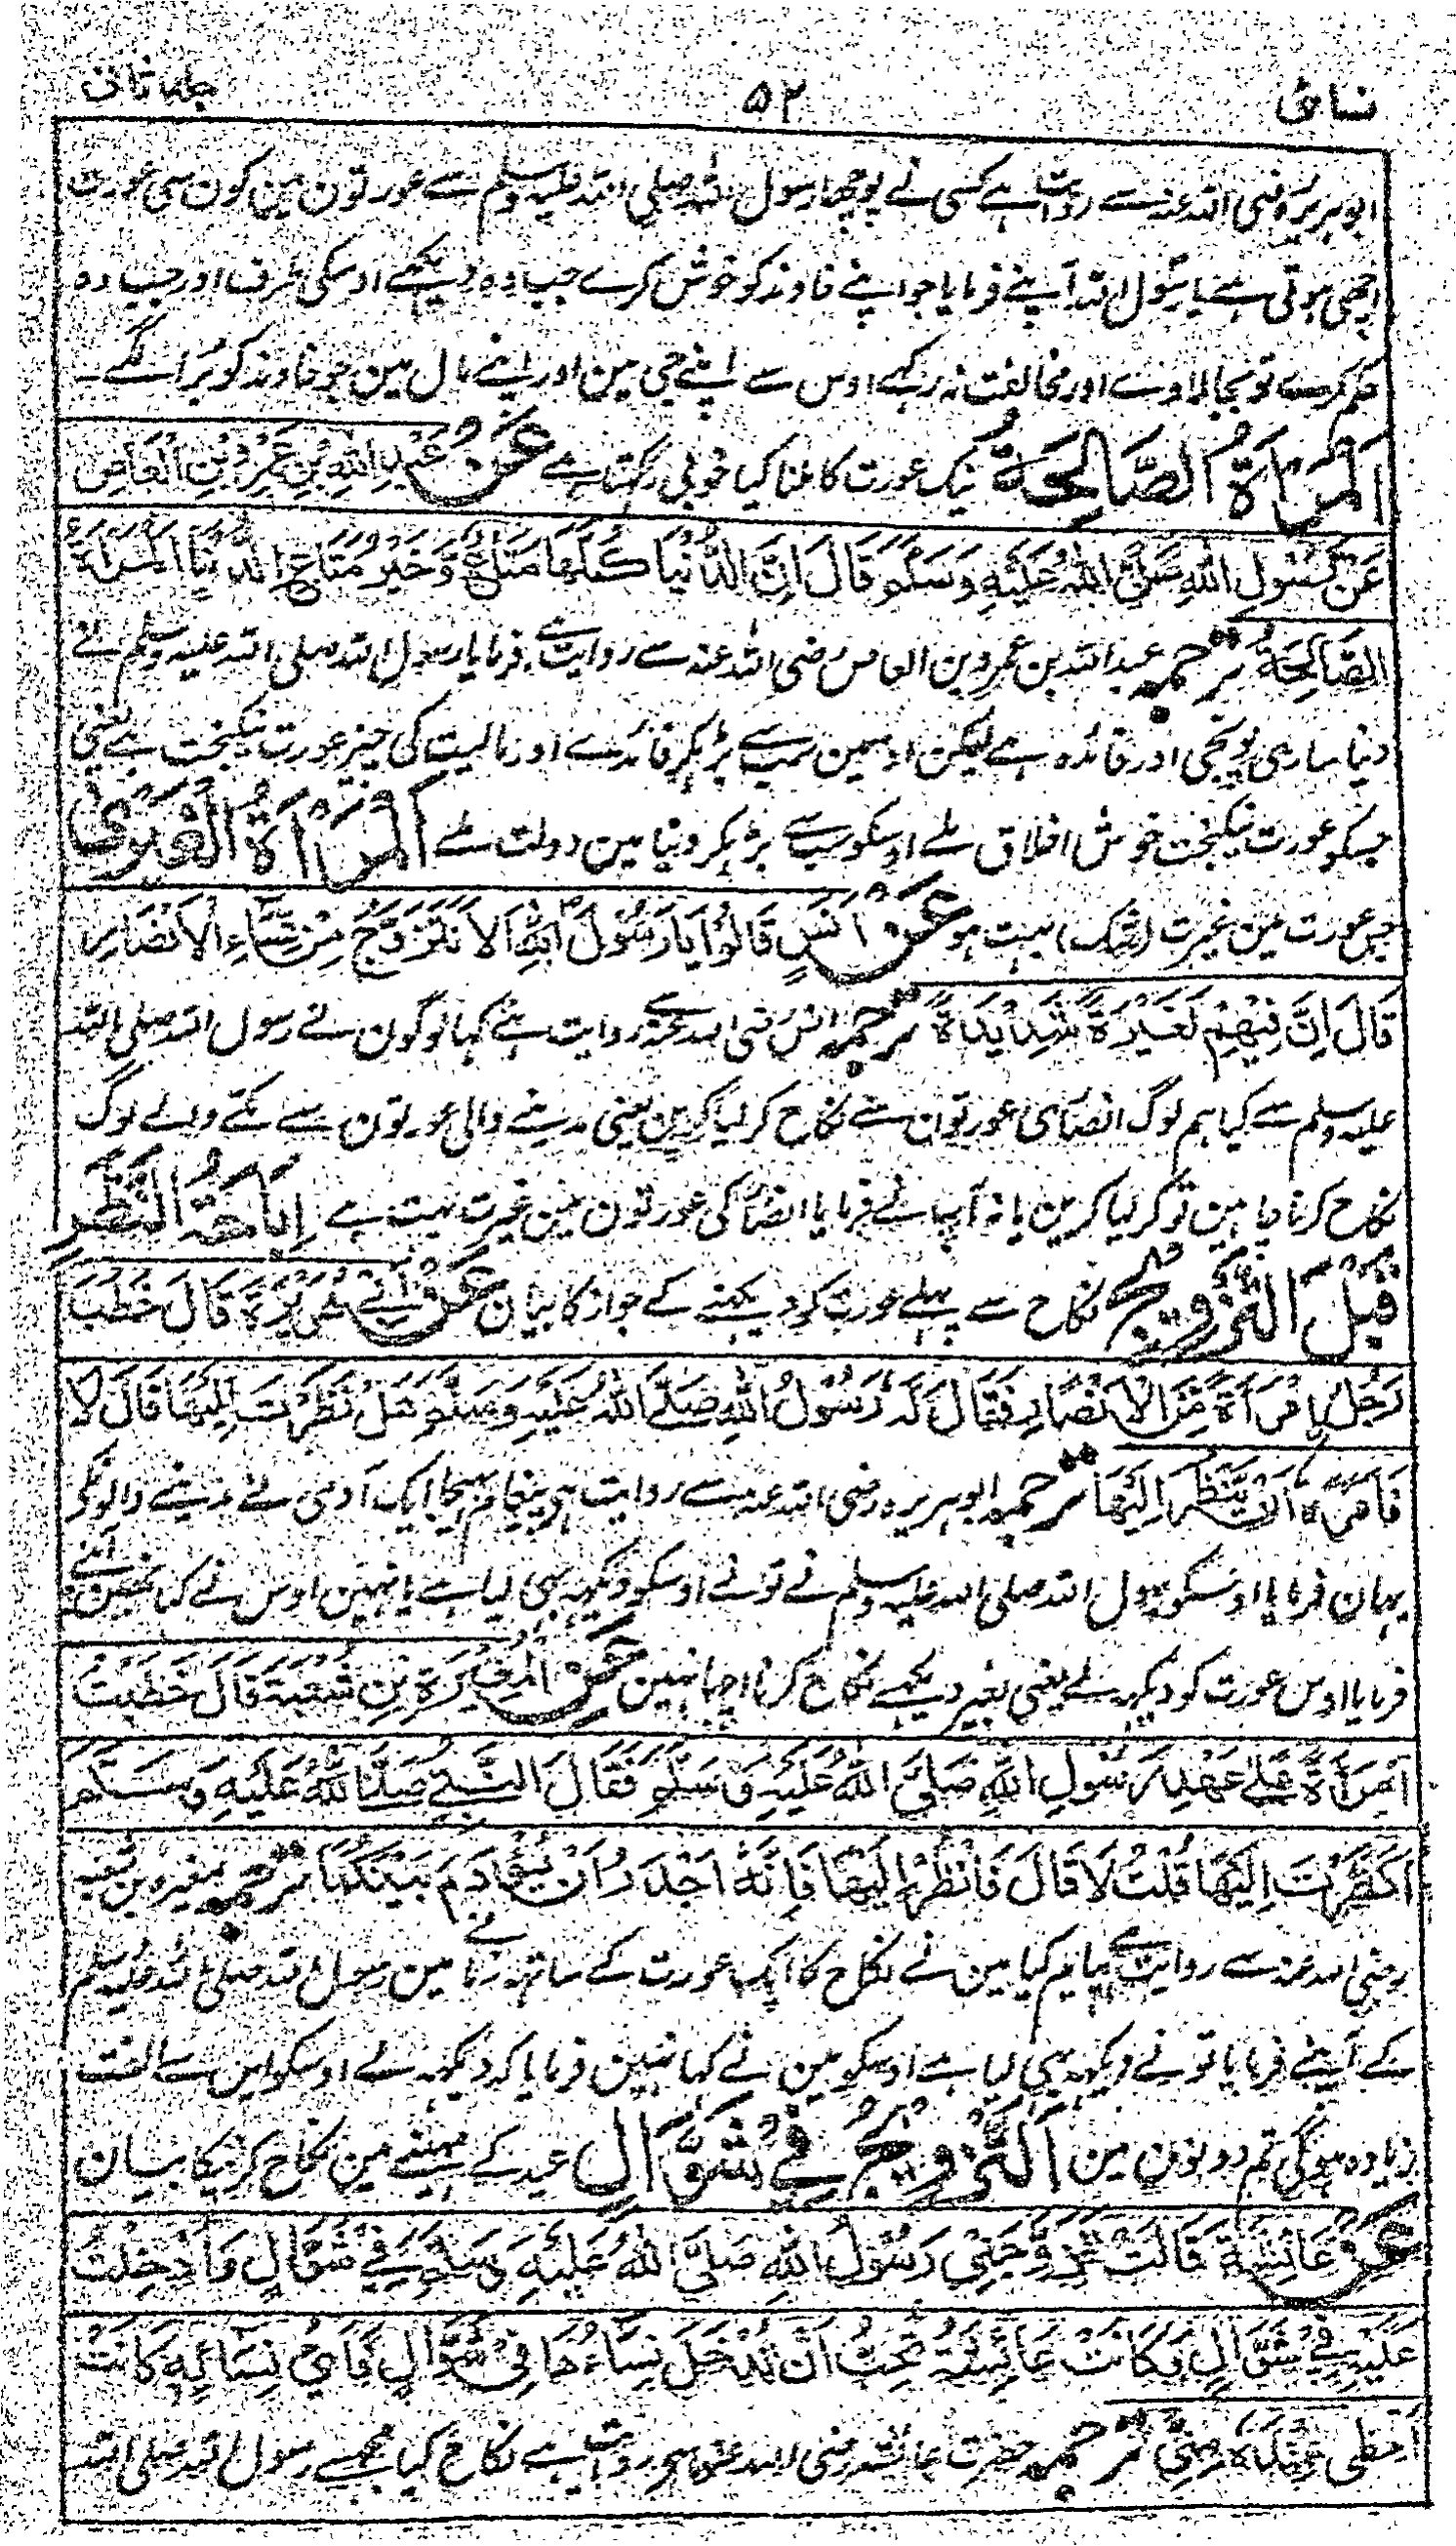 نسائی ۵۲ جلد ثانی
ابوہریرہ رضی اللہ عنہ سے روایت ہے کسی نے پوچھا رسول اللہ صلی اللہ علیہ وسلم سے عورتون مین کون سی عورت
اچھی ہوتی ہے یا رسول اللہ آپنے فرمایا جو اپنے خاوند کو خوش کرے جب وہ دیکھے اوسکی طرف اور جب وہ
حکم کرے تو بجالاوے اور مخالفت نہ رکہے اوس سے اپنے جی مین اور اپنے مال مین جو خاوند کو بُرا لگے ۔
اَلْمَرْاَةُ الصَّالِحَةُ نیک عورت کا ملنا کیا خوبی رکہتا ہے عَنْ عَبْدِ اللّٰهِ بْنِ عَمْرِو بْنِ الْعَاصِ
عَنْ رَسُولِ اللّٰهِ صَلَّى اللّٰهُ عَلَيْهِ وَسَلَّمَ قَالَ اِنَّ الدُّنْيَا كُلَّهَا مَتَاعٌ وَّخَيْرُ مَتَاعِ الدُّنْيَا الْمَرْاَةُ
الصَّالِحَةُ ترجمہ عبداللہ بن عمرو بن العاص رضی اللہ عنہ سے روایت ہے فرمایا رسول اللہ صلی اللہ علیہ وسلم نے
دنیا ساری پونجی اور فائدہ ہے لیکن اوسمین سب سے بڑہکر فائدے اور مالیت کی چیز عورت نیکبخت ہے یعنی
جسکو عورت نیکبخت خوش اخلاق ملے اوسکو سب سے بڑہکر دنیا مین دولت ملے اَلْمَرْاَةُ الْغَيْرٰى
جس عورت مین غیرت (رشک) بہت ہو عَنْ اَنَسٍ قَالُوْا يَا رَسُوْلَ اللّٰهِ اَلَا نَتَزَوَّجُ مِنْ نِسَآءِ الْاَنْصَارِ
قَالَ اِنَّ فِيْهِمْ لَغَيْرَةً شَدِيْدَةً ترجمہ انس رضی اللہ عنہ سے روایت ہے کہا لوگون نے رسول اللہ صلی اللہ
علیہ وسلم سے کیا ہم لوگ انصار کی عورتون سے نکاح کر لیا کرین یعنی مدینے والی عورتون سے مکے والے لوگ
نکاح کرنا چاہین تو کر لیا کرین یا نہ آپ نے فرمایا انصار کی عورتون مین غیرت بہت ہے اِبَاحَةُ النَّظَرِ
قَبْلَ التَّزْوِيْجِ نکاح سے پہلے عورت کو دیکہنے کے جواز کا بیان عَنْ اَبِيْ هُرَيْرَةَ قَالَ خَطَبَ
رَجُلٌ اِمْرَاَةً مِّنَ الْاَنْصَارِ فَقَالَ لَهٗ رَسُوْلُ اللّٰهِ صَلَّى اللّٰهُ عَلَيْهِ وَسَلَّمَ هَلْ نَظَرْتَ اِلَيْهَا قَالَ لَا
فَاَمَرَهٗ اَنْ يَّنْظُرَ اِلَيْهَا ترجمہ ابو ہریرہ رضی اللہ عنہ سے روایت ہے پیغام بہیجا ایک آدمی نے مدینے والونکے
یہان فرمایا اوسکو رسول اللہ صلی اللہ علیہ وسلم نے تونے اوسکو دیکہہ بہی لیا ہے یا نہین اوس نے کہا نہین آپنے
فرمایا اوس عورت کو دیکہہ لے یعنی بغیر دیکہے نکاح کرنا اچہا نہین عَنِ الْمُغِيْرَةِ بْنِ شُعْبَةَ قَالَ خَطَبْتُ
اِمْرَاَةً عَلٰى عَهْدِ رَسُوْلِ اللّٰهِ صَلَّى اللّٰهُ عَلَيْهِ وَسَلَّمَ فَقَالَ النَّبِيُّ صَلَّى اللّٰهُ عَلَيْهِ وَسَلَّمَ
اَنَظَرْتَ اِلَيْهَا قُلْتُ لَا قَالَ فَانْظُرْ اِلَيْهَا فَاِنَّهٗ اَجْدَرُ اَنْ يُّؤْدَمَ بَيْنَكُمَا ترجمہ مغیرہ بن شعبہ
رضی اللہ عنہ سے روایت ہے پیام کیا مین نے نکاح کا ایک عورت کے ساتہہ زمانے مین رسول اللہ صلی اللہ علیہ وسلم
کے آپنے فرمایا تونے دیکہہ بہی لیا ہے اوسکو مین نے کہا نہین فرمایا کہ دیکہہ لے اوسکو اس سے الفت
زیادہ ہوگی تم دونون مین اَلتَّزْوِيْجُ فِيْ شَوَّالٍ عید کے مہینے مین نکاح کرنیکا بیان
عَنْ عَائِشَةَ قَالَتْ تَزَوَّجَنِيْ رَسُوْلُ اللّٰهِ صَلَّى اللّٰهُ عَلَيْهِ وَسَلَّمَ فِيْ شَوَّالٍ وَاُدْخِلْتُ
عَلَيْهِ فِيْ شَوَّالٍ وَكَانَتْ عَائِشَةُ تُحِبُّ اَنْ تُدْخِلَ نِسَآءَهَا فِيْ شَوَّالٍ فَاَيُّ نِسَائِهٖ كَانَتْ
اَحْظٰى عِنْدَهٗ مِنِّيْ ترجمہ حضرت عائشہ رضی اللہ عنہا سے روایت ہے نکاح کیا مجہسے رسول اللہ صلی اللہ